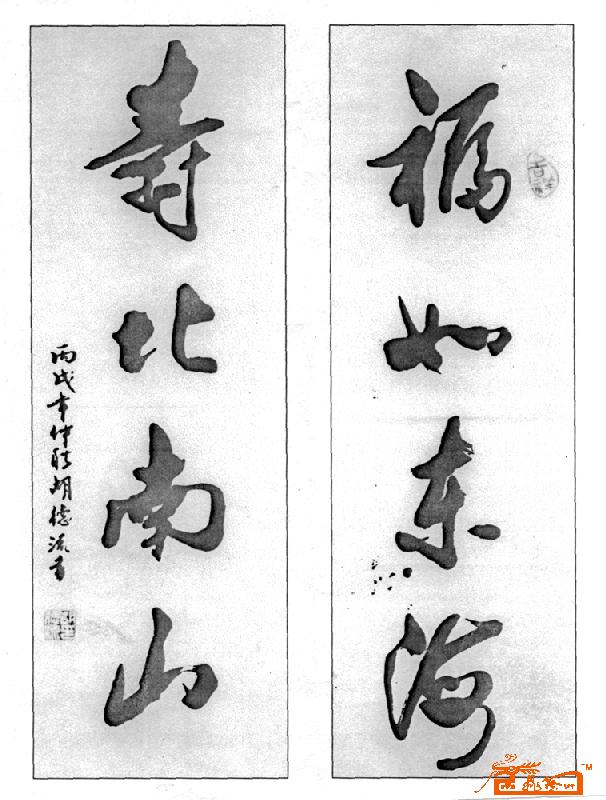 福如东海
寿比南山
丙戌年仲秋胡德流书